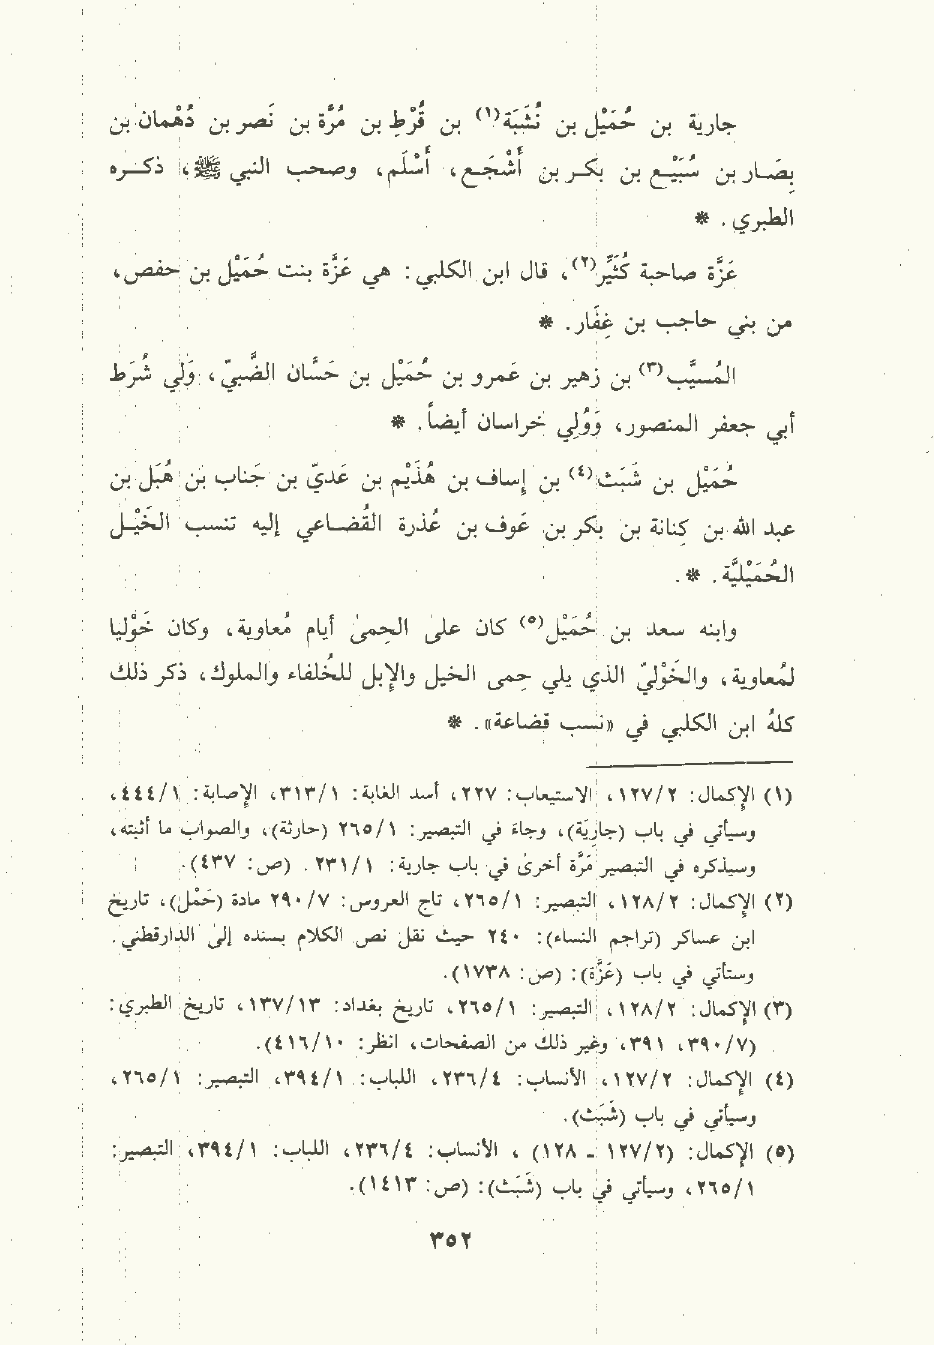 جارية بن حُمَيْل بن نُشَبَة(١) بن قُرْطِ بن مُرَّة بن نَصر بن دُهْمان بن
بِصَار بن سُبَيْع بن بكر بن أَشْجَع، أَسْلَم، وصحب النبي ﷺ، ذكره
الطبري. *
عَزَّة صاحبة كُثَيِّر(٢)، قال ابن الكلبي: هي عَزَّة بنت حُمَيْل بن حفص،
من بني حاجب بن غِفَار. *
المُسيَّب(٣) بن زهير بن عَمرو بن حُمَيْل بن حَسَّان الضَّبيّ، وَلي شُرَط
أبي جعفر المنصور، وَوُلِي خراسان أيضاً. *
حُمَيْل بن شَبَث(٤) بن إساف بن هُذَيْم بن عَديّ بن جَناب بن هُبَل بن
عبد الله بن كِنانة بن بكر بن عَوف بن عُذرة القُضاعي إليه تنسب الخَيْل
الحُمَيْليَّة. *.
وابنه سعد بن حُمَيْل(٥) كان على الحِمىٰ أيام مُعاوية، وكان خَوْليا
لمُعاوية، والخَوْليّ الذي يلي حِمى الخيل والإبل للخُلفاء والملوك، ذكر ذلك
كلهُ ابن الكلبي في «نسب قضاعة». *
(١) الإكمال: ١٢٧/٢، الاستيعاب: ٢٢٧، أسد الغابة: ٣١٣/١، الإصابة: ٤٤٤/١،
وسيأتي في باب (جارِيَة)، وجاءَ في التبصير: ٢٦٥/١ (حارثة)، والصواب ما أثبته،
وسيذكره في التبصير مَرَّة أخرىٰ في باب جارية: ٢٣١/١. (ص: ٤٣٧).
(٢) الإكمال: ١٢٨/٢، التبصير: ٢٦٥/١، تاج العروس: ٢٩٠/٧ مادة (حَمْل)، تاريخ
ابن عساكر (تراجم النساء): ٢٤٠ حيث نقل نص الكلام بسنده إلىٰ الدارقطني.
وستأتي في باب (عَزَّة): (ص: ١٧٣٨).
(٣) الإكمال: ١٢٨/٢، التبصير: ٢٦٥/١، تاريخ بغداد: ١٣٧/١٣، تاريخ الطبري:
(٣٩٠/٧، ٣٩١، وغير ذلك من الصفحات، انظر: ٤١٦/١٠).
(٤) الإكمال: ١٢٧/٢، الأنساب: ٢٣٦/٤، اللباب: ٣٩٤/١، التبصير: ٢٦٥/١،
وسيأتي في باب (شَبَث).
(٥) الإكمال: (١٢٧/٢ - ١٢٨) ، الأنساب: ٢٣٦/٤، اللباب: ٣٩٤/١، التبصير:
٢٦٥/١، وسيأتي في باب (شَبَث): (ص: ١٤١٣).
٣٥٢